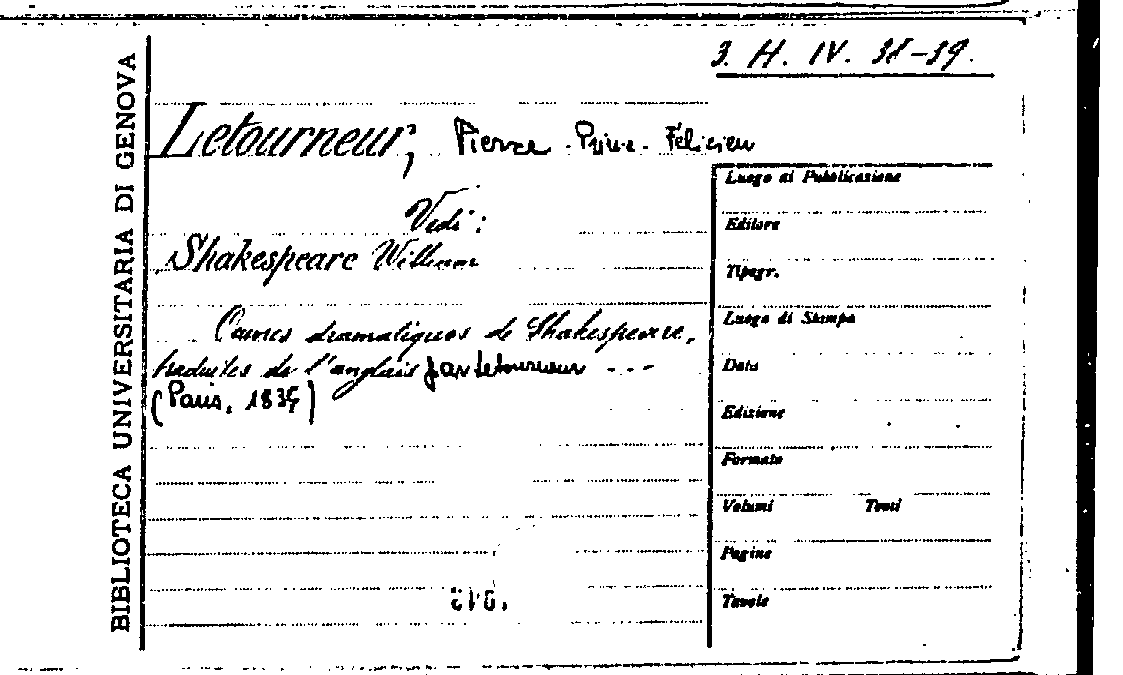 3. H. IV. 38-39.
BIBLIOTECA UNIVERSITARIA DI GENOVA
Letourneur, Pierre-Prime-Félicien
Vedi:
Shakespeare William
Œuvres dramatiques de Shakespeare,
traduites de l'anglais par Letourneur ---
(Paris, 1835)
Luogo di Pubblicazione
Editore
Tipogr.
Luogo di Stampa
Data
Edizione
Formato
Volumi Tomi
Pagine
Tavole